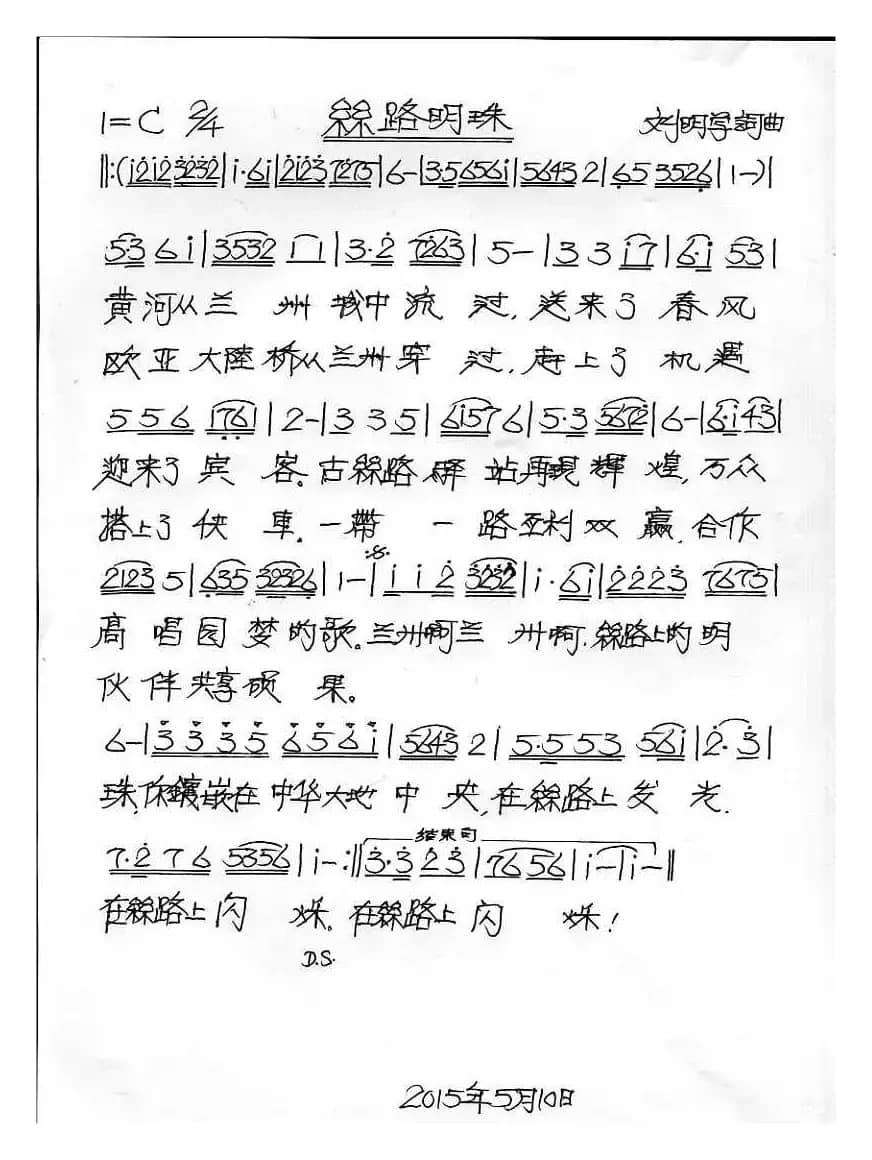 1=C 2/4 絲路明珠 刘明学詞曲
‖:(i̇2̇i̇2̇ 3̇2̇3̇2̇|i̇·6i̇|2̇i̇2̇3̇ 7̇2̇75|6-|3·5656i̇|5643 2|65 3526|1-)|
5·3 6 i̇|3532 1 1|3·2̇ 7263|5-|3 3 i̇7|6·i̇ 53|
黄河从兰 州 城中 流 过,送来了 春 风
欧亚大陸橋从兰州穿 过,赶上了 机 遇
5 5 6 1761|2-|3 3 5|6i̇57 6|5·3 5672̇|6-|6·i̇43|
迎来了 宾 客。古絲路 驛 站再現 輝 煌,万众
搭上了 快 車。一帶 一 路互利 双 赢,合作
2123 5|635 32326|1-|i̇ i̇ 2̇ 3̇2̇3̇2̇|i̇·6i̇|2̇2̇2̇3̇ 7675|
高 唱 园 梦的歌。兰州啊兰 州啊,絲路上的 明
伙 伴 共享硕 果。
6-|3̇ 3̇ 3̇ 5 6 5 6 i̇|5643 2|5·5 5 3 56i̇|2̇·3̇|
珠,你鑲嵌在 中华大地 中 央,在絲路上 发 光.
7·2̇ 7 6 5356|i̇-:‖3̇·3̇ 2̇ 3̇|76 56|i̇-|i̇-‖
结束句
在絲路上 闪 烁。在絲路上 闪 烁!
D.S.
2015年5月10日